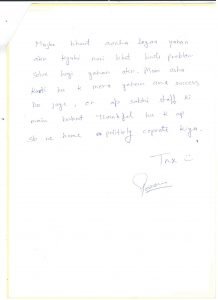 Mujhe bhaut acncha lagaa yahan
akr kyuki meri bhut badi problem
solve hogi yahan akr. Mam asha
karti hu k mera yahan sand success
ho jaye, or ap sabhi staff ki
main bahut thankful hu k ap
sb ne hame politely coprate kiya.
Tnx